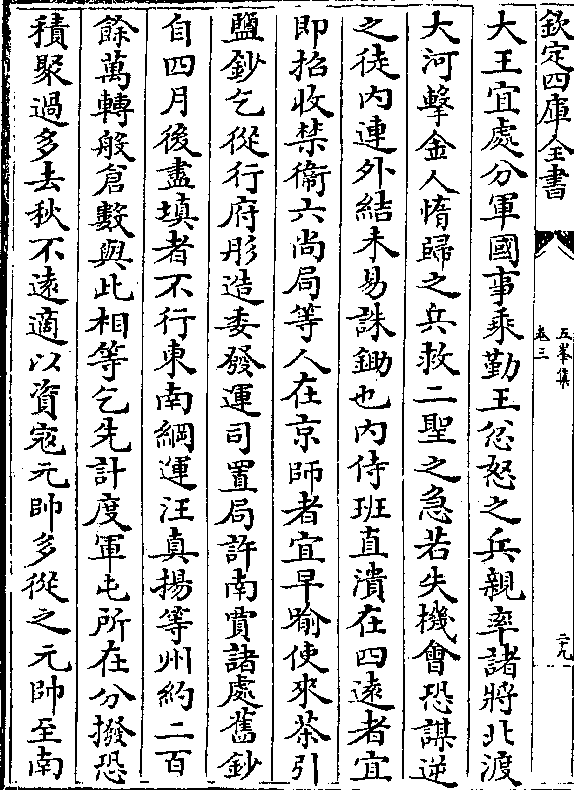 欽定四庫全書
五峯集
卷三
二十九
大王宜處分軍國事乘勤王忿怒之兵親率諸將北渡
大河擊金人惰歸之兵救二聖之急若失機會恐謀逆
之徒内連外結未易誅鋤也内侍班直潰在四遠者宜
即招收禁衞六尚局等人在京師者宜早喻使來茶引
鹽鈔乞從行府彤造委發運司置局許南賣諸處舊鈔
自四月後盡填者不行東南綱運汪真揚等州約二百
餘萬轉般倉數與此相等乞先計度軍屯所在分撥恐
積聚過多去秋不遠適以資宼元帥多從之元帥至南